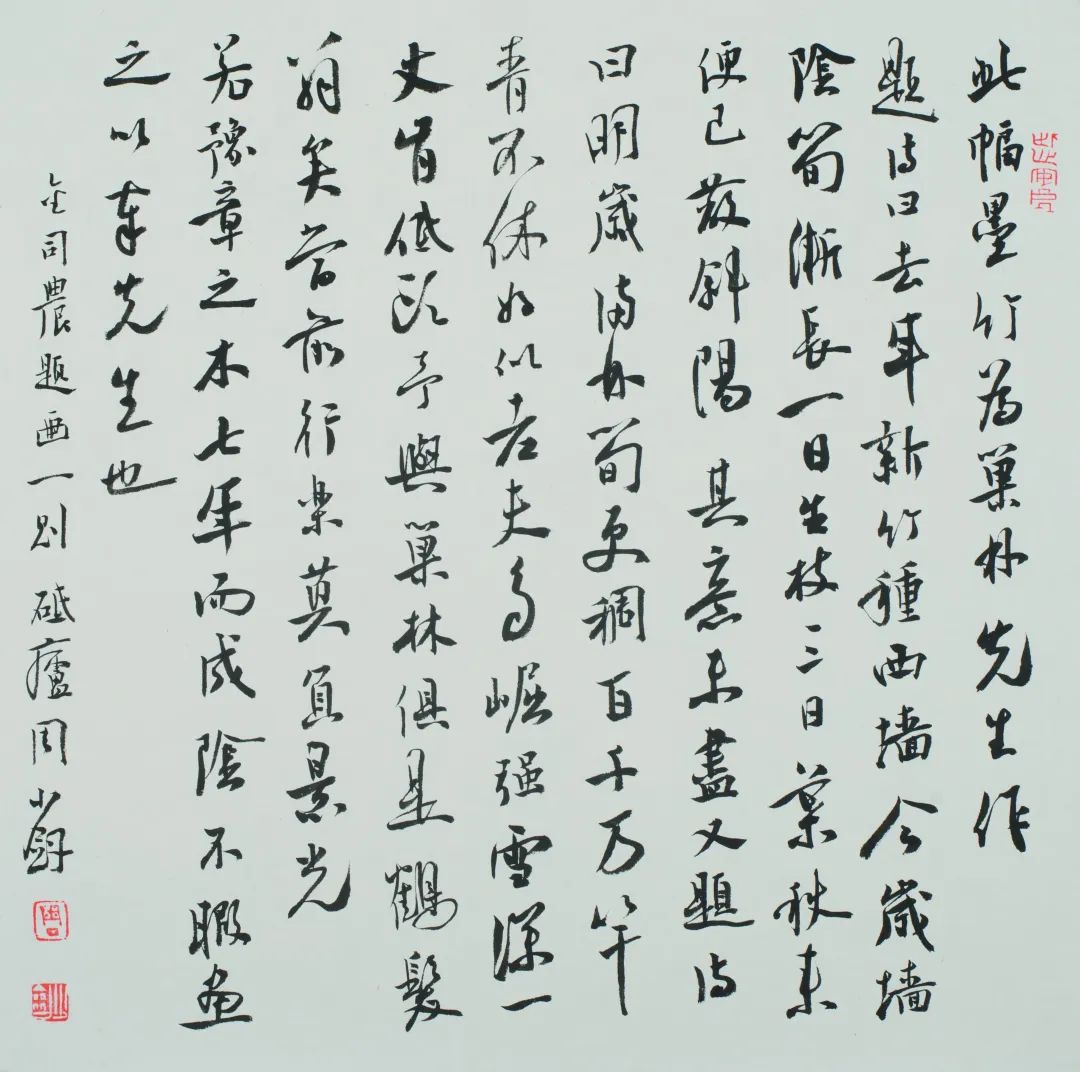 此幅墨竹為巢林先生作
題詩曰去年新竹種西墻今歲墻
陰筍漸長一日生枝三日葉秋來
便已蔽斜陽 其意未盡又題詩
曰明歲滿林筍更稠百千万竿
青不休好似老夫多崛强雪深一
丈肯低頭予與巢林俱是鶴髮
翁矣當前行樂莫負景光
若豫章之木七年而成陰不暇畫
之以奉先生也
金司農題画一則 砥 周小